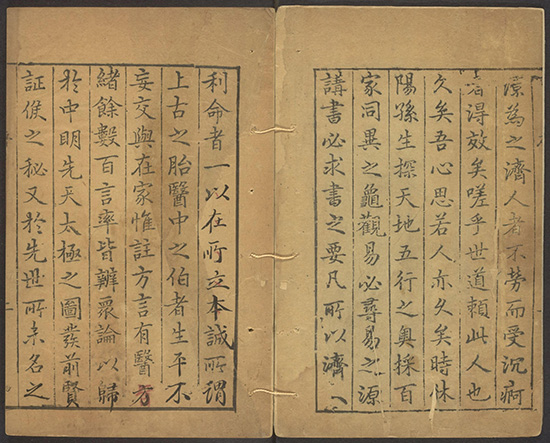 為之濟人者不勞而受沉痾
者得效矣嗟乎世道賴此人也
久矣吾心思若人亦久矣時休
陽孫生探天地五行之奧採百
家同異之龜觀易必尋易之源
講書必求書之要凡所以濟
利命者一以在所立本誠所謂
上古之胎醫中之伯者生平不
妄交與在家惟註方言有醫方
緒餘數百言率皆辨眾論以歸
於中明先天太極之圖發前賢
証候之秘又於先世所未名之